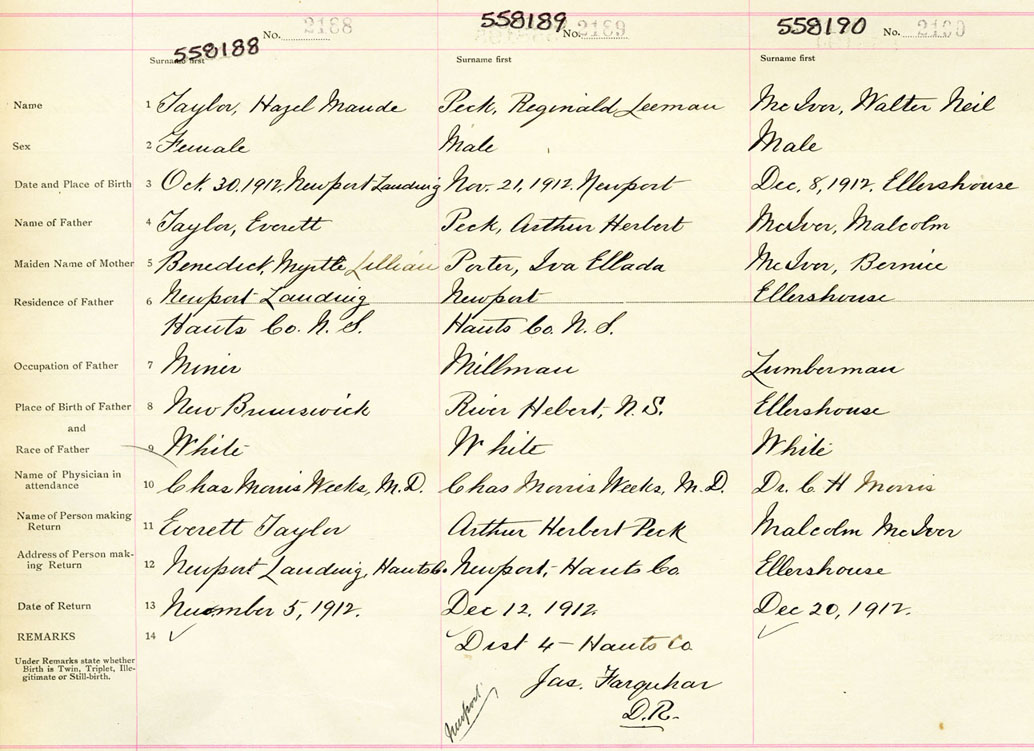 558188 No. 2168 558189 No. 2169 558190 No.
Surname first Surname first Surname first
Name 1 Taylor, Hazel Maude Peck, Reginald Leeman McIvor, Walter Neil
Sex 2 Female Male Male
Date and Place of Birth 3 Oct. 30, 1912. Newport Landing Nov. 21, 1912. Newport Dec, 8, 1912. Ellershouse
Name of Father 4 Taylor, Everett Peck, Arthur Herbert McIvor, Malcolm
Maiden Name of Mother 5 Benedick, Myrtle Lillian Porter, Iva Ellada McIvor, Bernice
Residence of Father 6 Newport Landing Newport Ellershouse
Hants Co. N. S. Hants Co. N. S.
Occupation of Father 7 Miner Millman Lumberman
Place of Birth of Father 8 New Brunswick River Hebert, N. S. Ellershouse
and
Race of Father 9 White White White
Name of Physician in
attendance 10 Chas Morris Weeks, M.D. Chas Morris Weeks, M.D. Dr. C H Morris
Name of Person making
Return 11 Everett Taylor Arthur Herbert Peck Malcolm McIvor
Address of Person mak-
ing Return 12 Newport Landing, Hants Co. Newport, Hants Co. Ellershouse
Date of Return 13 November 5, 1912. Dec 12, 1912. Dec 20, 1912.
REMARKS 14 ✓ Dist 4 - Hants Co ✓
Under Remarks state whether
Birth is Twin, Triplet, Ille-
gitimate or Still-birth.
Jas. Farquhar
D.R.
Newport